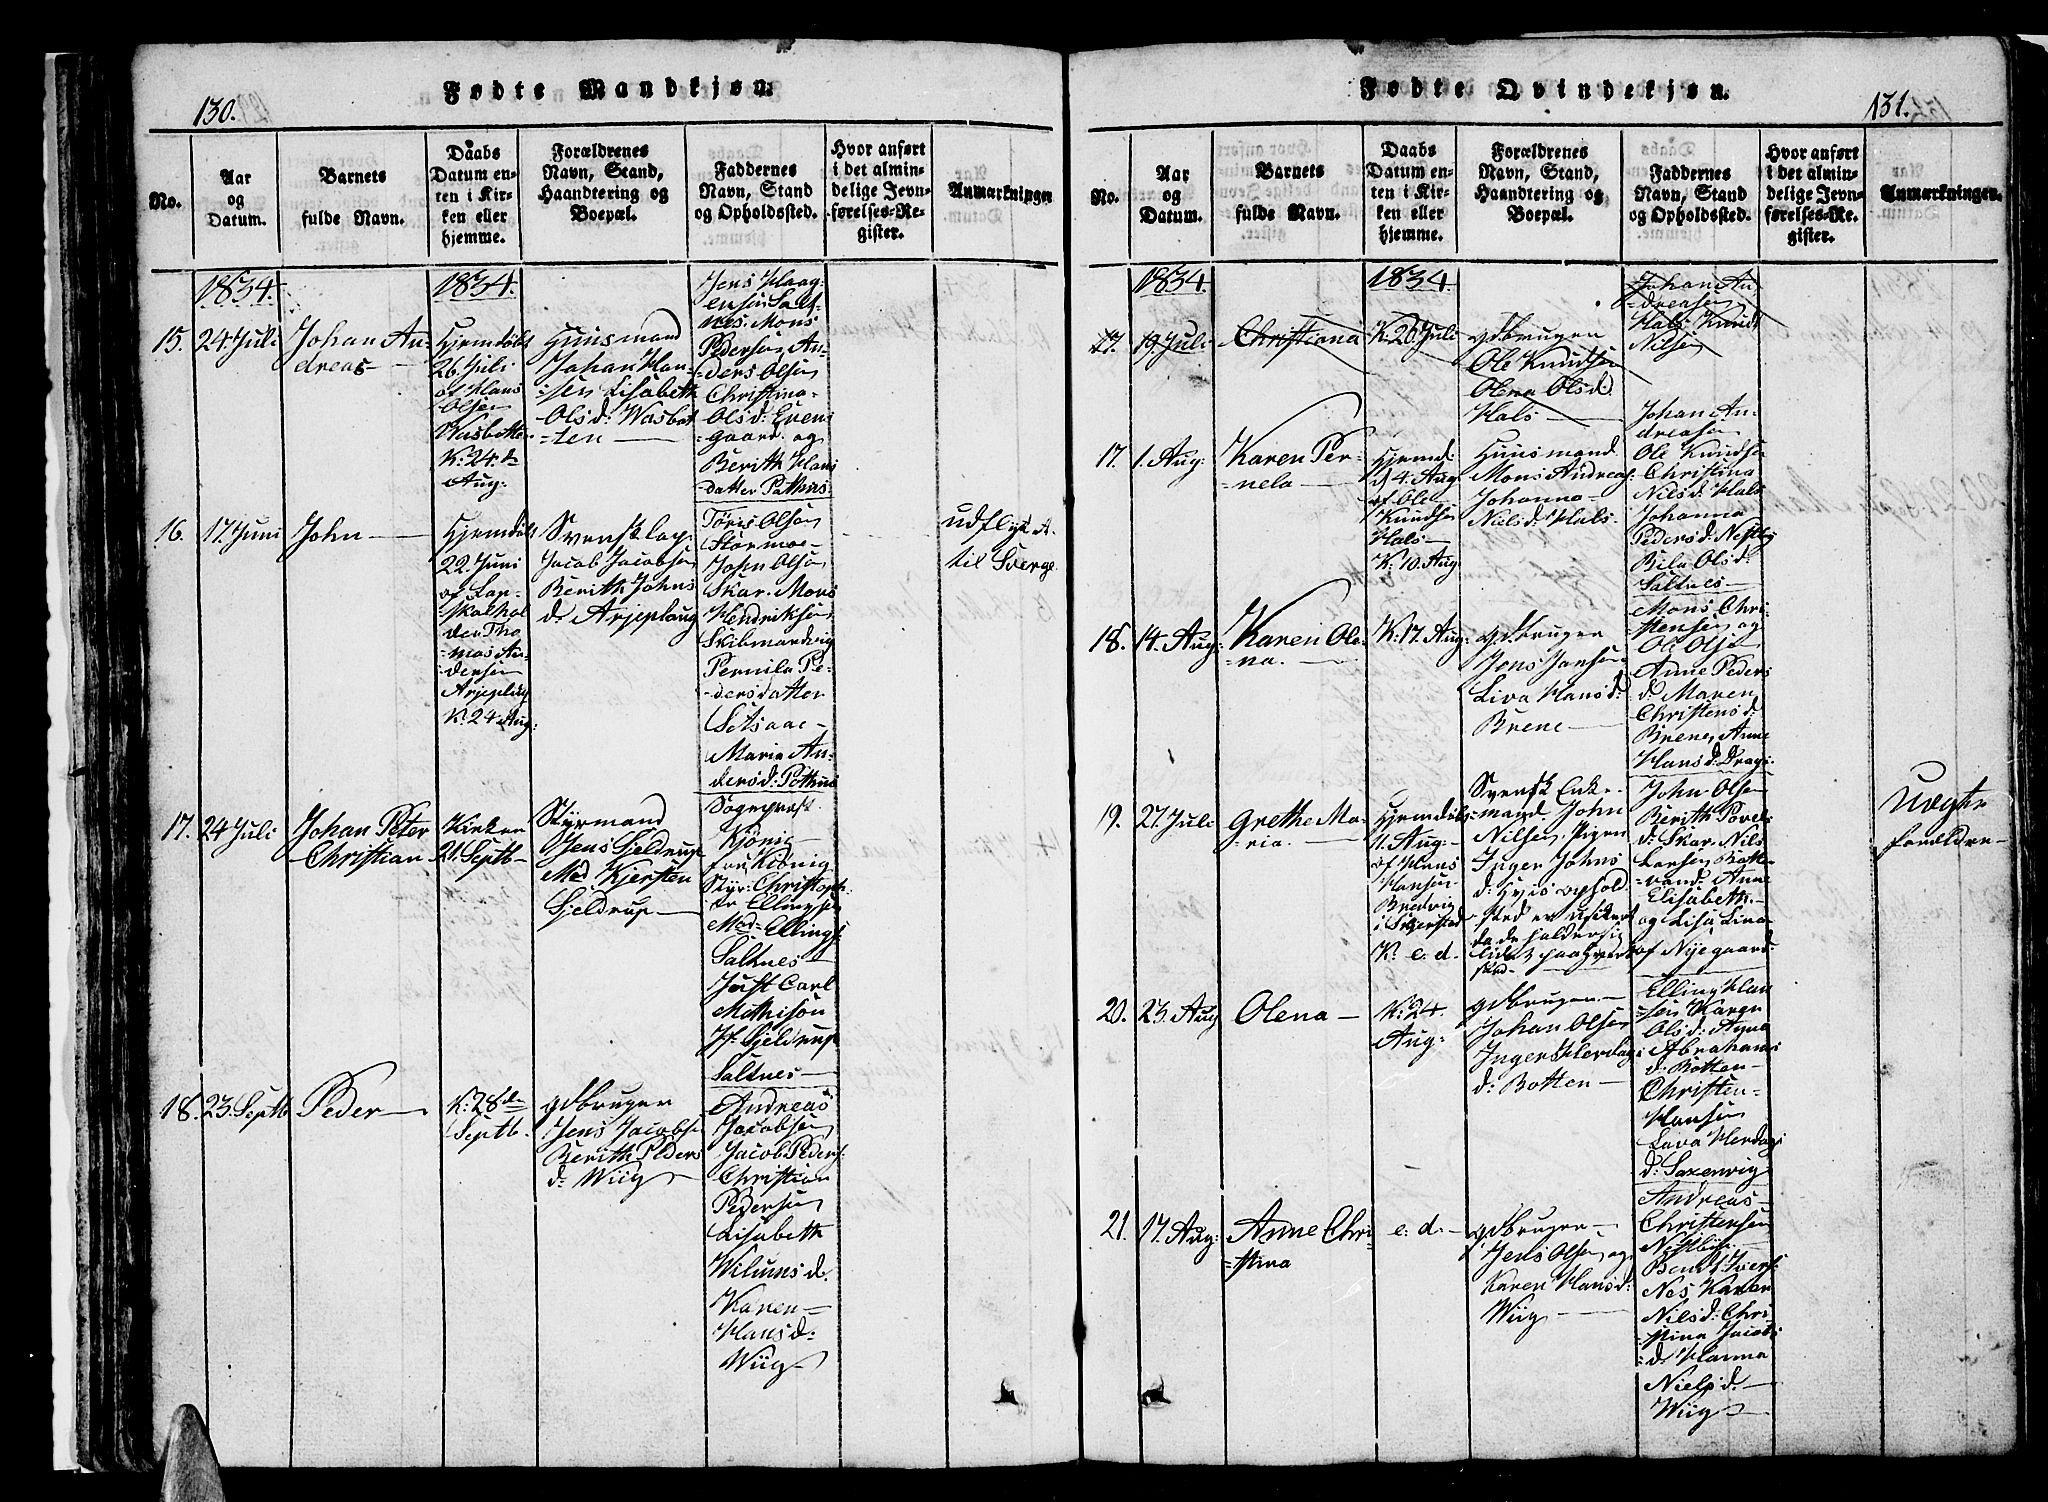 130.
Fødte Mandkjøn.
No.
Aar
og
Datum.
Barnets
fulde Navn.
Daabs
Datum en-
ten i Kir-
ken eller
hjemme.
Forældrenes
Navn, Stand,
Haandtering og
Boepæl.
Faddernes
Navn, Stand
og Opholdssted.
Hvor anført
i det almin-
delige Jevn-
førelses-Re-
gister.
Anmærkninger
1834.
15.
24 Juli
Johan An-
dreas
1834.
Hjemdøbt
26. Juli
af Hans
Olsen
K: 24. d
Aug:
Huusmand
Johan Han-
sen Lisabeth
Olsd:
Jens Haag-
ensen Salt-
nes. Mons
Pedersen An-
ders Olsen
Christina
Olsd: Even-
gaard og
Berith Hans
datter Pothus
16.
17. Juni
John
Hjemdøbt
22. Juni
af Lap-
skolhol
der Tho
=mas An-
dersen
Arjeplog
K: 24 Aug:
Svensk lap
Jacob Jacobsen
Berith Johns
d. Arjeploug
Olsen
Stormoe
John Olsen
Skar. Mons
Hendriksen
Pernila Pe-
=dersdatter
Setsaae
Maria An-
dersd: Pothus
udflyt A.
til Sverge
17.
24 Juli
Johan Peter
Christian
Kirken
21. Septb
Styrmand
Jens Sjeldrup
Md Kjersten
Sjeldrup
Sogneprest
Kjönig
fru König
Styr: Christoph-
er Ellingsen
Md Ellings
Saltnes
Just Carl
Mathisen
Jf: Sjeldrup
Saltnes
18.
23. Septb
Peder
K: 28 d
Septb.
gdbruger
Jens Jacobsen
Berith Peders
d: Wiig
Andreas
Jacobsen
Jacob Peders
Christian
Pedersen
Lisabeth
Wilums d.
Karen
Hansd:
Wiig
131.
Fødte Qvindekjøn.
No.
Aar
og
Datum.
Barnets
fulde Navn.
Daabs
Datum en-
ten i Kir-
ken eller
hjemme.
Forældrenes
Navn, Stand,
Haandtering og
Boepæl.
Faddernes
Navn, Stand
og Opholdssted.
Hvor anført
i det almin-
delige Jevn-
førelses-Re-
gister.
Anmærkninger.
1834.
17.
19. Juli
Christiana
1834.
K: 20 Juli
gdbruger
Ole Knudsen
Olena Olsd.
Hals
Johan An-
=dreasen
Hals Knud
Nilsen
17.
1. Aug:
Karen Per-
=nela
Hjemd:
d 4. Aug
af Ole
Knudsen
Hals
K: 10. Aug
Huusmand
Mons Andreas
Johanna
Nielsd: Hals
Johan An-
dreasen
Ole Knudsen
Christina
Nilsd: Hals
Johanna
Pedersd: Nestby
Olsd:
Saltnes
18.
14. Aug:
Karen Ole-
na.
K: 17. Aug:
gdbruger
Jens Jansen
Liva Hansd:
Brene
Mons Chri-
stensen og
Ole Olsen
Anne Peders
d: Maren
Christensd:
Brene, Anne
Hansd:
19.
27. Juli
Grethe Ma-
ria.
Hjemdøbt
11. Aug:
af Hans
Hansen
Bredvig
K. e. d.
Svensk Enke-
mand John
Nilsen, Pigen
Inger Johns
d: Hvis ophold
sted er usikert
John Olsen
Berith Povels
d: Skar, Nils
Larsen Bott-
Anne
Elisabeth
og Lisa Lina
af Nijegaard
Uægte
foraldre
20.
23. Aug
Olena
K: 24
Aug:
gdbruger
Johan Olsen
Inger Herdags
d: Botten
Elling Han
=sen Karen
Olsd:
Abrahams
d: Botten
Christen
Hansen
Lava Herdags
d: Saxenvig
21.
17. Aug:
Anne Chri-
=stina
e: d:
gdbruger
Jens Olsen og
Karen Hansd:
Wiig
Andreas
Christensen
Nestbÿ
Bendt Ivers
Nes Karen
Nilsd: Chri-
=stina Jacobs
=d. Hanna
Nielsd.
Wiig